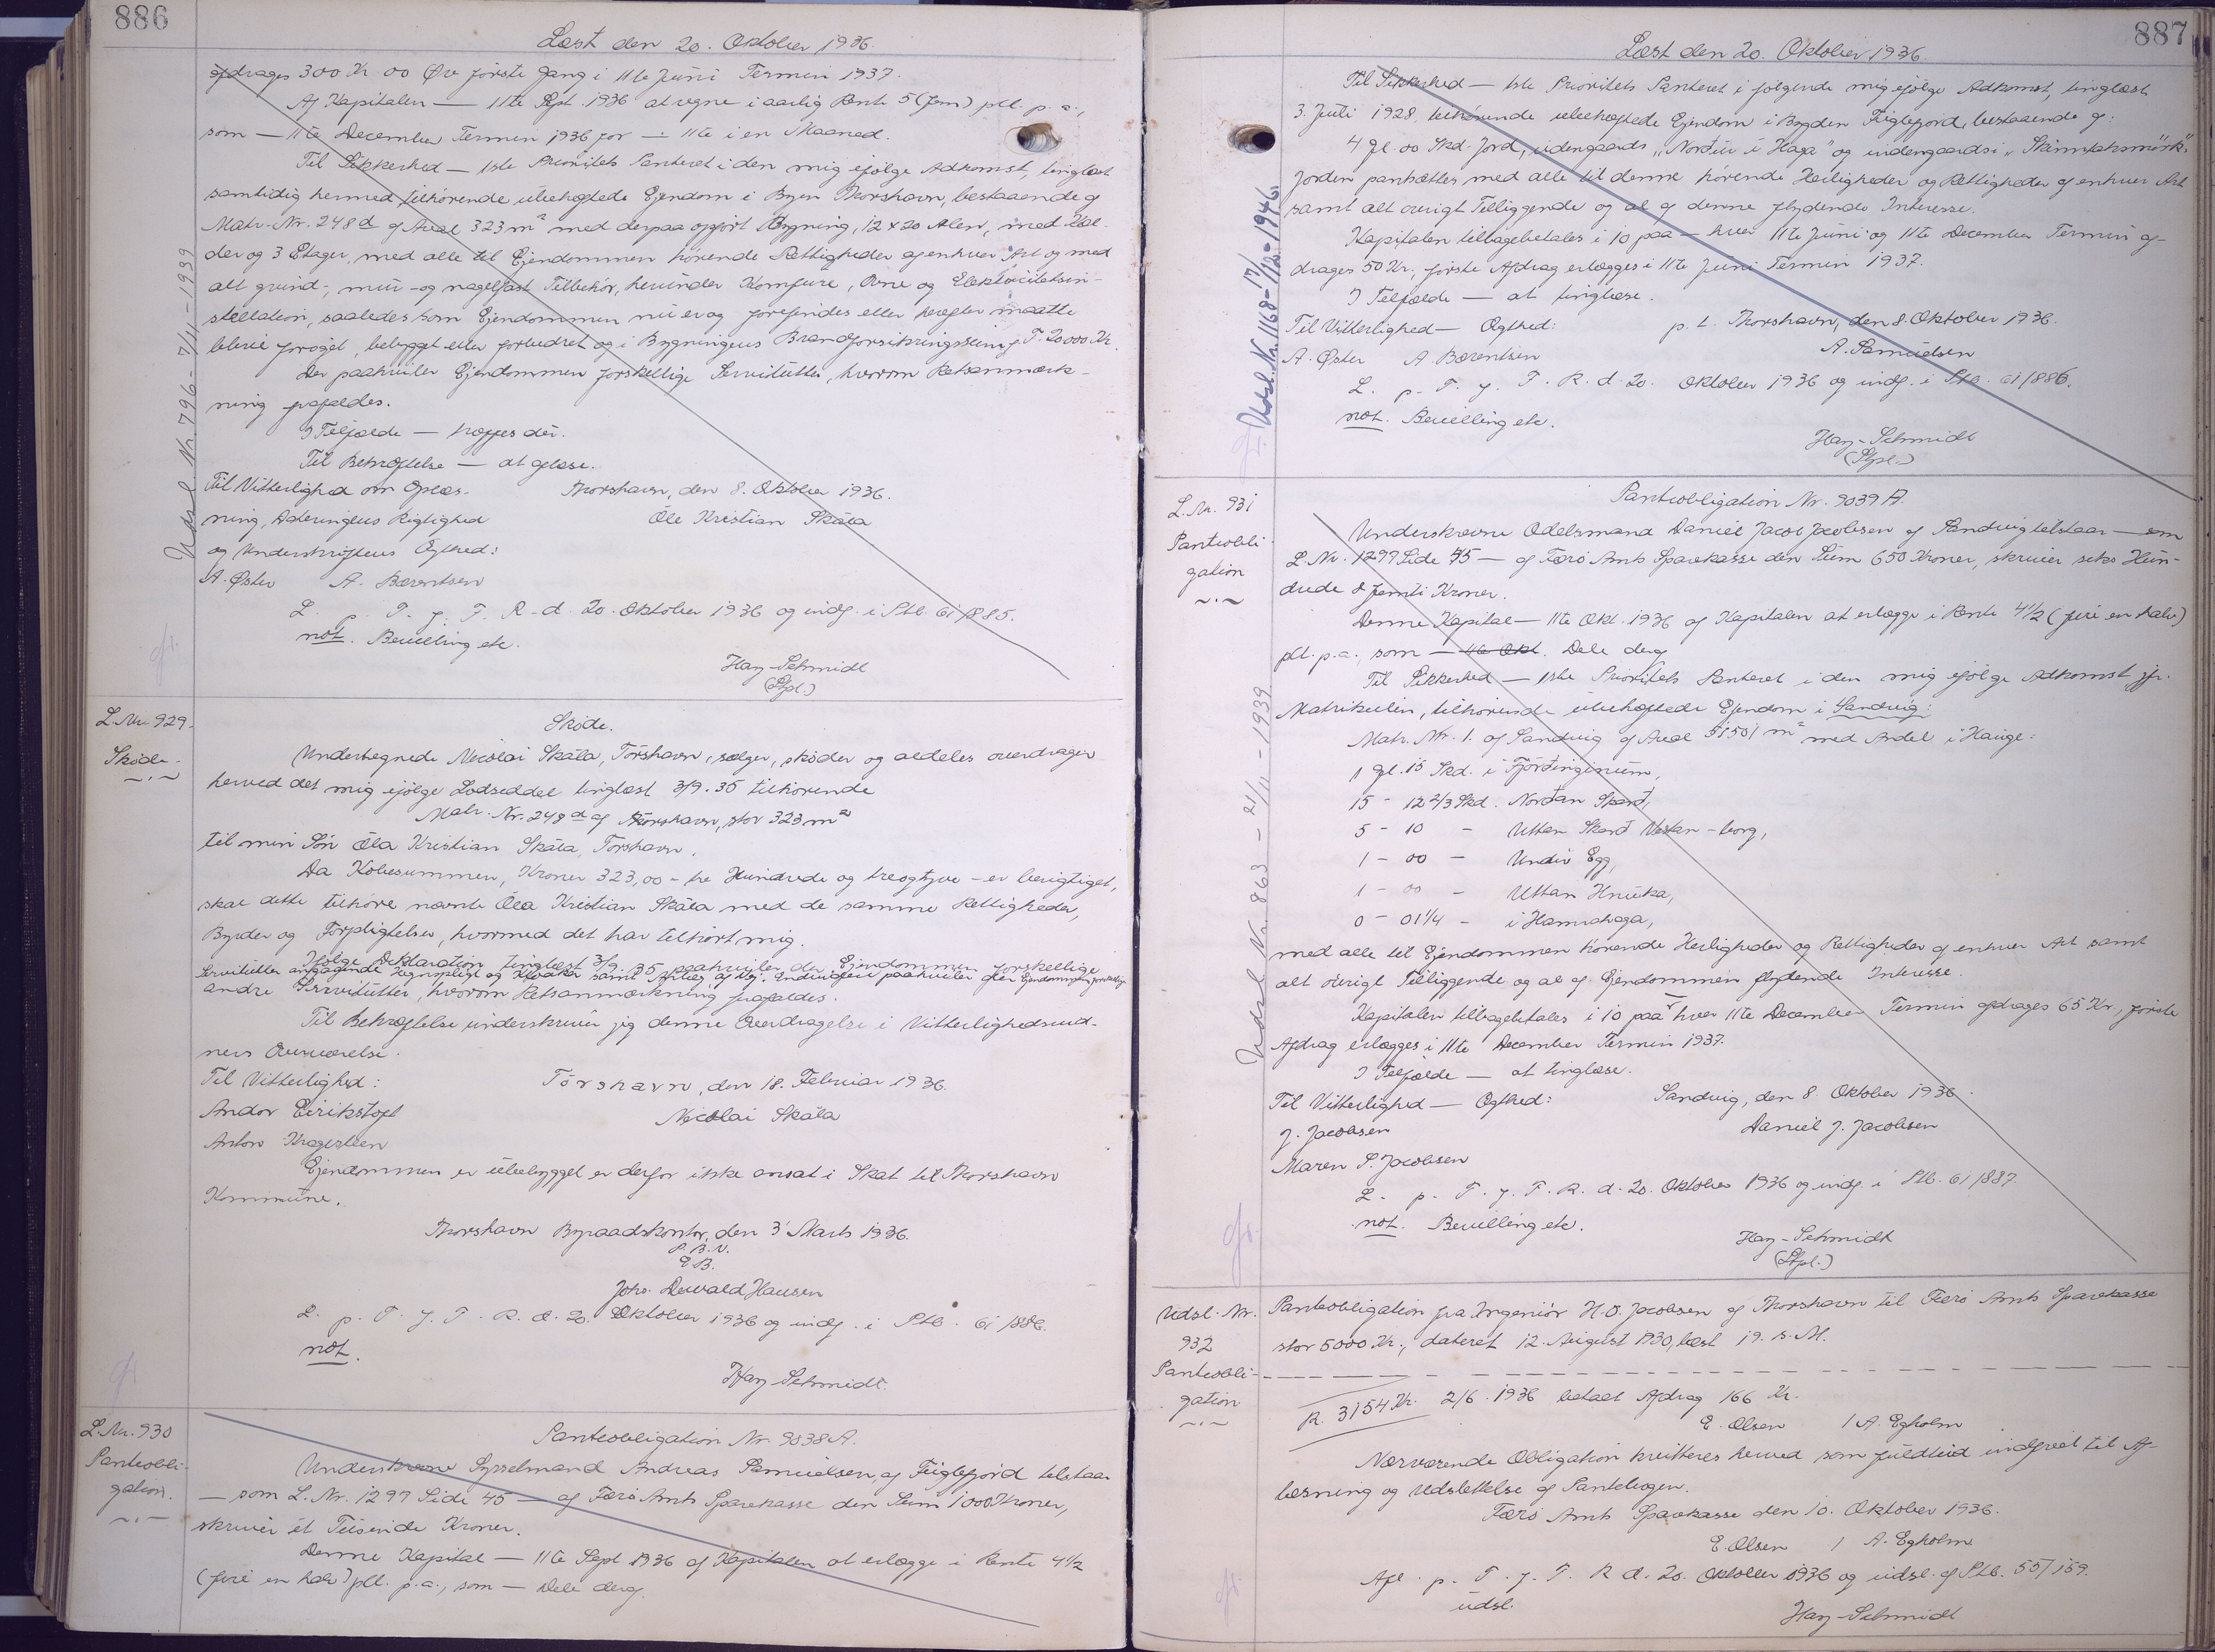 886
Læst den 20. Oktober 1936.
afdrages 300 Kr. 00 Øre første Gang i 11te Juni Termin 1937.
Af Kapitalen — 11te Sept. 1936 at regne i aarlig Rente 5 (fem) pCt. p. a.,
som — 11te December Termin 1936 for — 11te i en Maaned.
Til Sikkerhed — 1ste Prioritets Panteret i den mig ifølge Adkomst, tinglæst
samtidig hermed tilhørende ubehæftede Ejendom i Byen Thorshavn, bestaaende af
Matr. Nr. 248 d af Areal 323 m² med derpaa opført Bygning, 12 x 20 Alen, med Kæl-
der og 3 Etager, med alle til Ejendommen hørende Rettigheder af enhver Art og med
alt grund-, mur- og nagelfast Tilbehør, herunder Komfure, Ovne og Elektricitetsin-
stallation, saaledes som Ejendommen nu er og forefindes eller herefter maatte
blive forøget, bebygget eller forbedret og i Bygningens Brandforsikringssum f. T. 20000 Kr.
Der paahviler Ejendommen forskellige Servitutter, hvorom Retsanmærk-
ning frafaldes.
I Tilfælde — hæftes der.
Til Bekræftelse — at læse.
Til Vitterlighed om Oplæs- Thorshavn, den 8. Oktober 1936.
ning, Dateringens Rigtighed Óle Kristian Skála
og Underskriftens Ægthed:
A. Øster A. Bærentsen
L. p. T. f. F. R. d. 20. Oktober 1936 og indf. i Ptb. 61/885.
not. Bevilling etc.
Hay-Schmidt
(Stpl.)
Udsl. Nr. 796 - 7/11 - 1939
L. Nr. 929.
Skøde.
Skøde.
Undertegnede Nicolai Skála, Tórshavn, sælger, skøder og aldeles overdrager
herved det mig ifølge Lodseddel tinglæst 3/9. 35 tilhørende
Matr. Nr. 248 d af Thorshavn, stor 323 m²
til min Søn Óla Kristian Skála, Tórshavn.
Da Købesummen, Kroner 323,00 - tre Hundrede og treogtyve - er berigtiget,
skal dette tilhøre nævnte Óla Kristian Skála med de samme Rettigheder,
Byrder og Forpligtelser, hvormed det har tilhørt mig.
Ifølge Deklaration tinglæst 3/9 35 paahviler der Ejendommen forskellige
Servitutter angaaende Hegnspligt og Kloaker samt Anlæg af Vej. Endvidere paahviler der Ejendommen forskellige
andre Servitutter, hvorom Retsanmærkning frafaldes.
Til Bekræftelse underskriver jeg denne Overdragelse i Vitterlighedsvid-
ners Overværelse.
Til Vitterlighed: Tórshavn, den 18. Februar 1936.
Andor Eirikstoft Nicolai Skála
Anton Kragesteen
Ejendommen er ubebygget er derfor ikke ansat i Skat til Thorshavn
Kommune.
Thorshavn Byraadskontor, den 3' Marts 1936.
P. B. V.
E. B.
Johs. Dewald Hansen
L. p. T. f. F. R. d. 20. Oktober 1936 og indf. i Ptb. 61/886.
not.
Hay Schmidt.
L. Nr. 930
Pantobli-
gation.
Pantobligation Nr. 9038 A.
Underskrevne Sysselmand Andreas Samuelsen, af Fuglefjord tilstaar
— som L. Nr. 1297 Side 45 — af Færø Amts Sparekasse den Sum 1000 Kroner,
skriver ét Tusinde Kroner.
Denne Kapital — 11te Sept 1936 af Kapitalen at erlægge i Rente 4½
(fire en halv) pCt. p.a., som — Dele deraf.
887
Læst den 20. Oktober 1936.
Til Sikkerhed — 1ste Prioritets Panteret i følgende mig ifølge Adkomst, tinglæst
3. Juli 1928, tilhørende ubehæftede Ejendom i Bygden Fuglefjord, bestaaende af:
4 Gl. 00 Skd. Jord, udengaards „Norður i Haga” og indengaards i „Skinntaksmørk”.
Jorden pantsættes med alle til denne hørende Herligheder og Rettigheder af enhver Art
samt alt øvrigt Tilliggende og al af denne flydende Interesse.
Kapitalen tilbagebetales i 10 paa — hver 11te Juni og 11te December Termin af-
drages 50 Kr., første Afdrag erlægges i 11te Juni Termin 1937.
I Tilfælde — at tinglæse.
Til Vitterlighed — Ægthed: p. t. Thorshavn, den 8. Oktober 1936.
A. Øster A. Bærentsen A. Samuelsen
L. p. T. f. F. R. d. 20. Oktober 1936 og indf. i Ptb. 61/886.
not. Bevilling etc.
Hay-Schmidt
(Stpl.)
Udsl. Nr. 1168 - 17/12 - 1946.
L. Nr. 931
Pantobli-
gation
Pantobligation Nr. 9039 A.
Underskrevne Odelsmand Daniel Jacob Jacobsen af Sandvig tilstaar — som
L. Nr. 1297 Side 45 — af Færø Amts Sparekasse den Sum 650 Kroner, skriver seks Hun-
drede & femti Kroner.
Denne Kapital — 11te Okt. 1936 af Kapitalen at erlægge i Rente 4½ (fire en halv)
pCt. p.a., som — 11te Okt. Dele deraf
Til Sikkerhed — 1ste Prioritets Panteret i den mig ifølge Adkomst jfr.
Matrikulen, tilhørende ubehæftede Ejendom i Sandvig:
Matr. Nr. 1. af Sandvig af Areal 51501 m² med Andel i Hauge:
1 Gl. 15 Skd. i Fjørðinginum,
15 - 12 2/3 Skd. Norðan Skarð,
5 - 10 - Uttan Skarð Vestan-borg,
1 - 00 - Undir Egg,
1 - 00 - Uttan Hnúka,
0 - 01¼ - i Hamrahaga,
med alle til Ejendommen hørende Herligheder og Rettigheder af enhver Art samt
alt øvrigt Tilliggende og al af Ejendommen flydende Interesse.
Kapitalen tilbagebetales i 10 paa — hver 11te December Termin afdrages 65 Kr., første
Afdrag erlægges i 11te December Termin 1937.
I Tilfælde — at tinglæse.
Til Vitterlighed — Ægthed: Sandvig, den 8. Oktober 1936.
J. Jacobsen Daniel J. Jacobsen
Maren S. Jacobsen
L. p. T. f. F. R. d. 20. Oktober 1936 og indf. i Ptb. 61/887.
not. Bevilling etc.
Hay-Schmidt
(Stpl.)
Udsl. Nr. 863 - 21/11 - 1939
Udsl. Nr.
932
Pantobli-
gation
Pantobligation fra Ingeniør H. O. Jacobsen af Thorshavn til Færø Amts Sparekasse
stor 5000 Kr., dateret 12. August 1930, læst 19. s. M.
R. 3154 Kr. 2/6. 1936 betalt Afdrag 166 Kr.
E. Olsen / A. Egholm
Nærværende Obligation kvitteres herved som fuldtud indfriet til Af-
læsning og Udslettelse af Pantebogen.
Færø Amts Sparekasse den 10. Oktober 1936.
E. Olsen / A. Egholm
Afl. p. T. f. F. R d. 20. Oktober 1936 og udsl. af Ptb. 55/159.
udsl.
Hay-Schmidt